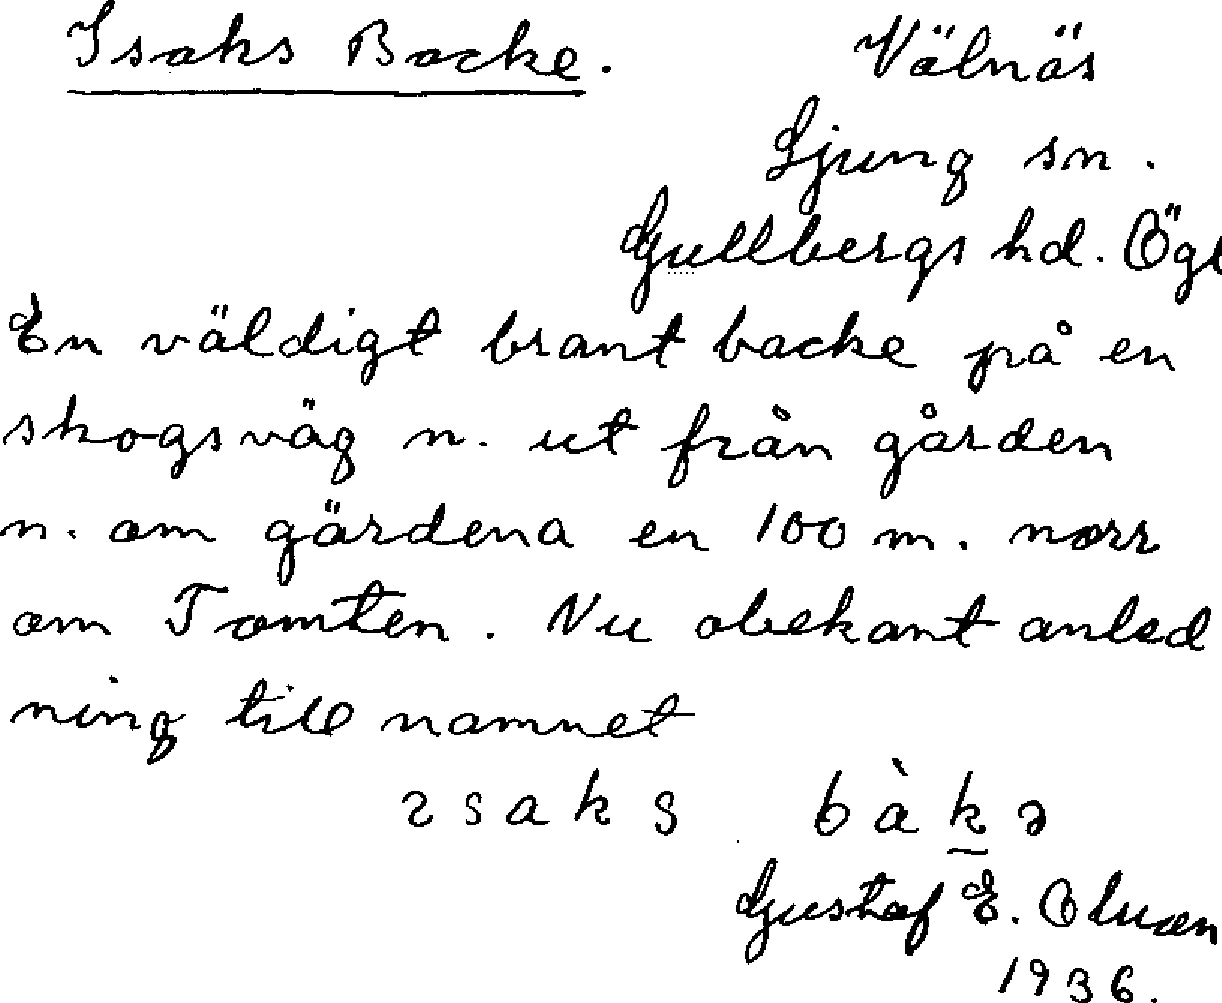 Isaks Backe. Välnäs
Ljung sn.
Gullbergs hd. Ögl
En väldigt brant backe på en
skogsväg n. ut från gården
n. om gärdena en 100 m. norr
om Tomten. Nu obekant anled
ning till namnet
ɩsaks bàkə
Gustaf E.
1936.